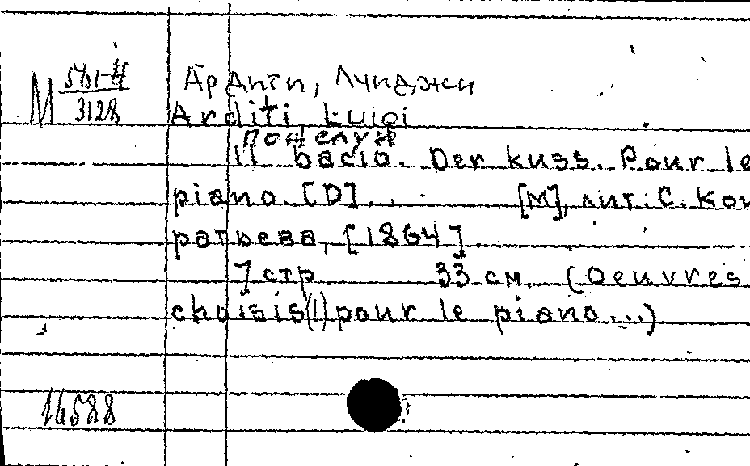 Ардити, Луиджи
M 3128
Arditi Luigi
Поцелуй
Il bacio. Der kuss. Pour le
piano. [D]... [М], лит. С. Кон
ратьева, [1864].
7 стр 33 см. (Oeuvres
choisis(!) pour le piano...)
16588